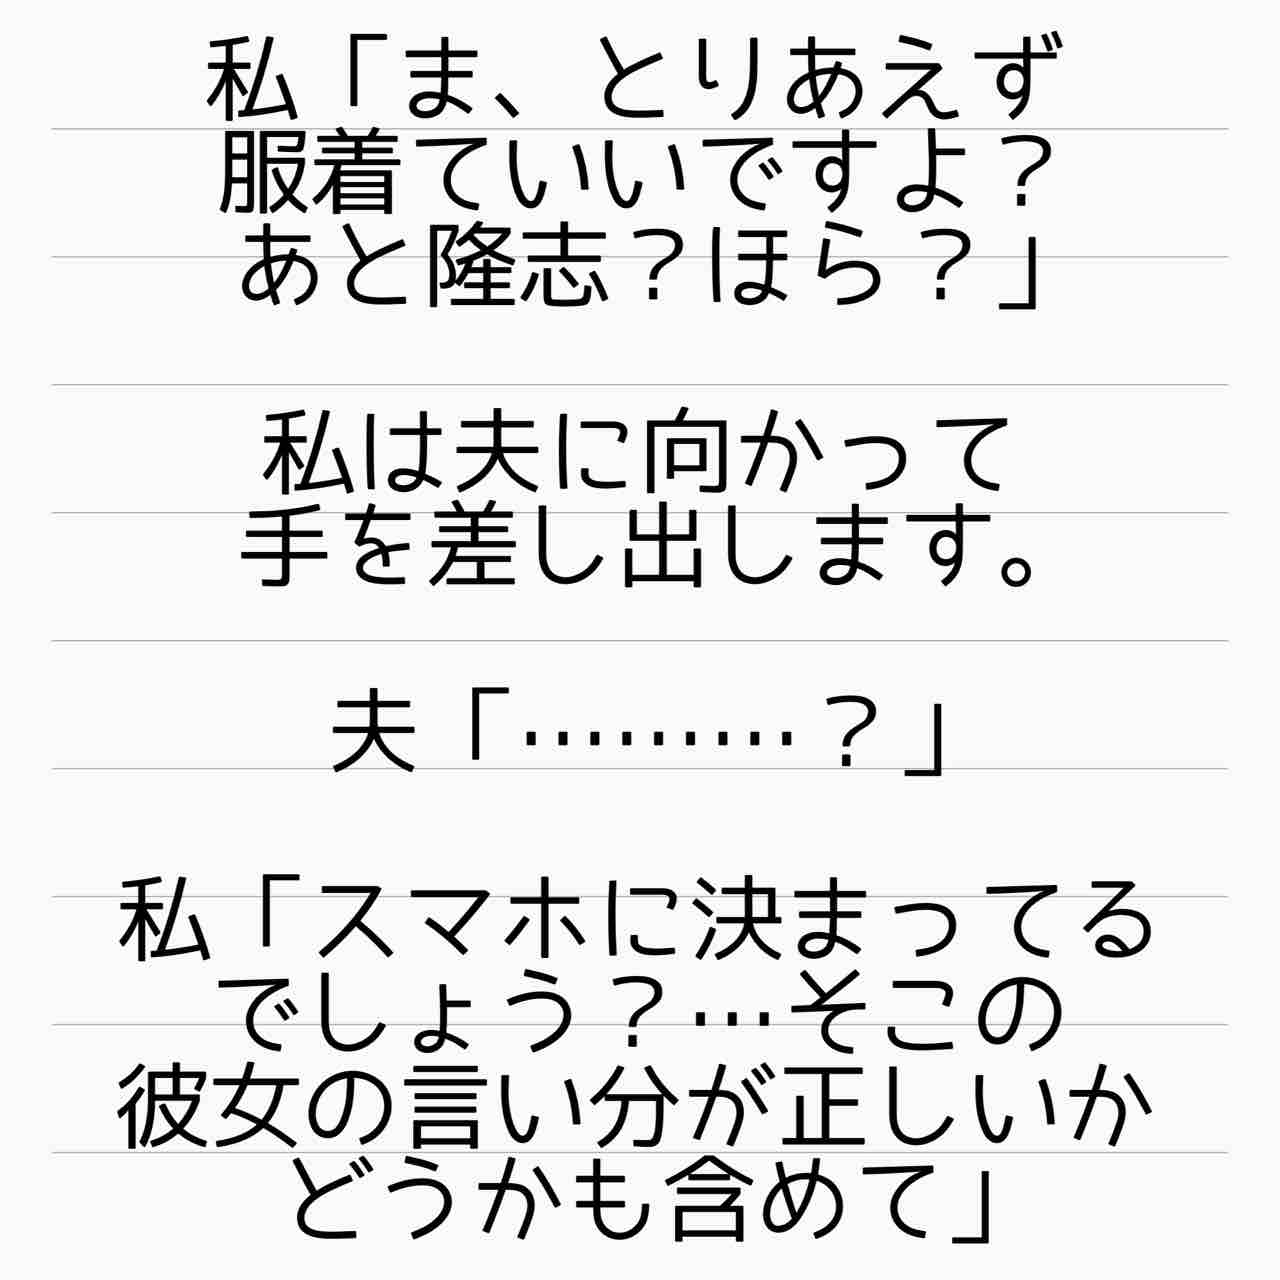 私「ま、とりあえず
服着ていいですよ？
あと隆志？ほら？」
私は夫に向かって
手を差し出します。
夫「………？」
私「スマホに決まってる
でしょう？…そこの
彼女の言い分が正しいか
どうかも含めて」